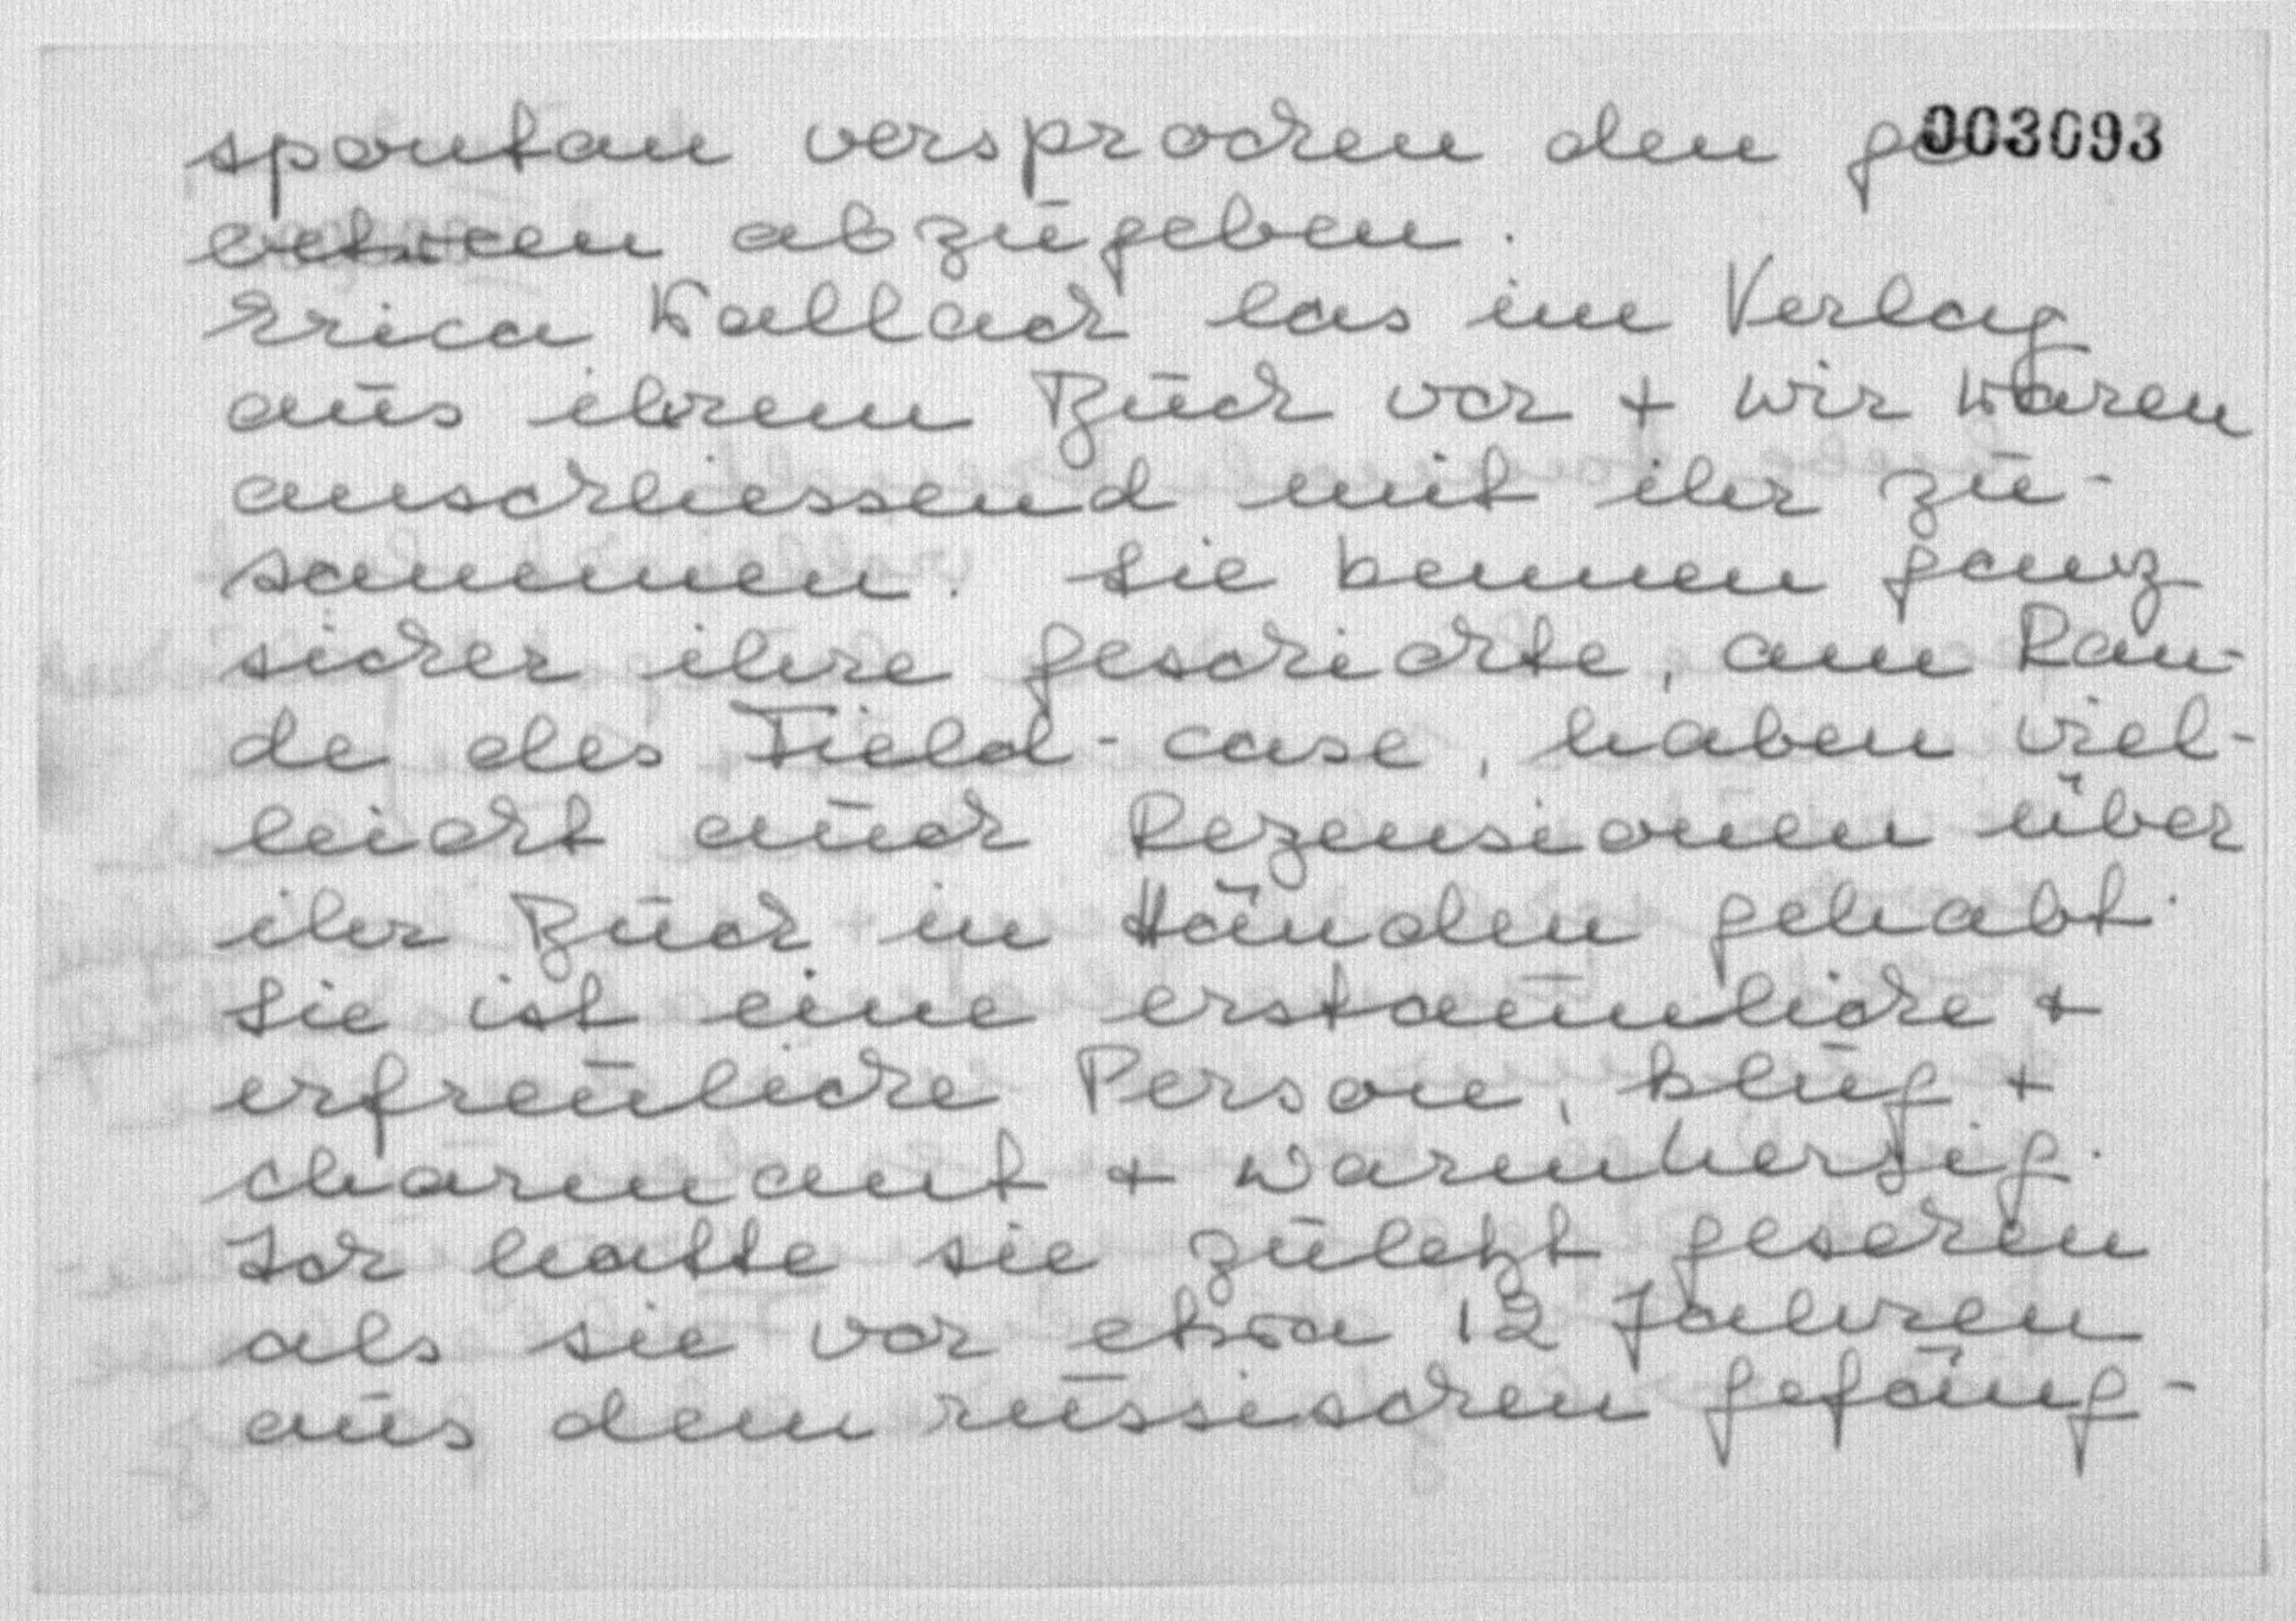 spontan versprochen den ge 003093
betreen abzugeben.
Erica Wallach las im Verlag
aus ihrem Buch vor + wir waren
anschliessend mit ihr zu-
sammen. Sie kennen ganz
sicher ihre Geschichte, am Ran-
de des Field-case, haben viel-
leicht auch Rezensionen über
ihr Buch in Händen gehabt.
Sie ist eine erstaunliche +
erfreuliche Person, klug +
charmant + warmherzig.
Ich hatte sie zuletzt gesehen
als sie vor etwa 12 Jahren
aus dem russischen Gefäng-